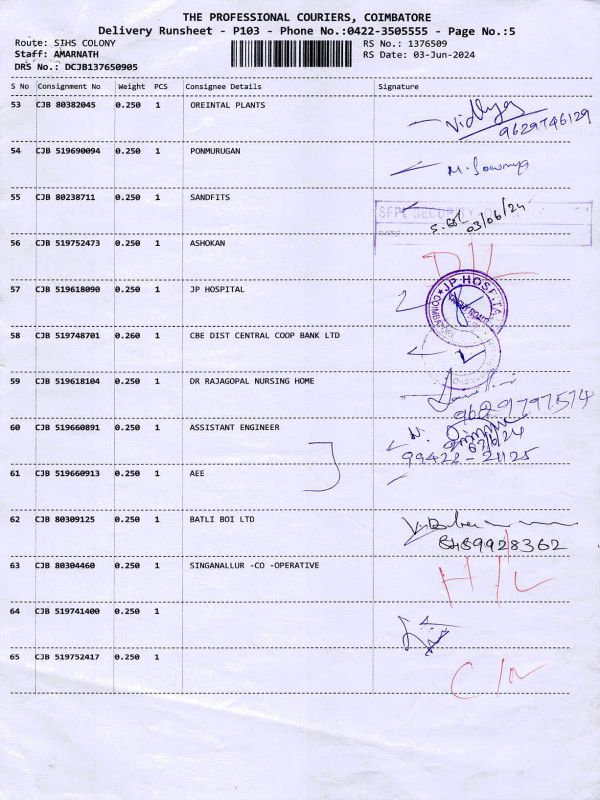 THE PROFESSIONAL COURIERS, COIMBATORE
Delivery Runsheet - P103 - Phone No.:0422-3505555 - Page No.:5
Route: SIHS COLONY RS No.: 1376509
Staff: AMARNATH RS Date: 03-Jun-2024
DRS No.: DCJB137650905
S No Consignment No Weight PCS Consignee Details Signature
53 CJB 80382045 0.250 1 OREINTAL PLANTS Vidhya
9629746129
54 CJB 519690094 0.250 1 PONMURUGAN M. Sowmya
55 CJB 80238711 0.250 1 SANDFITS
03/06/24
56 CJB 519752473 0.250 1 ASHOKAN D/L
57 CJB 519618090 0.250 1 JP HOSPITAL JP HOSPITAL
58 CJB 519748701 0.260 1 CBE DIST CENTRAL COOP BANK LTD
59 CJB 519618104 0.250 1 DR RAJAGOPAL NURSING HOME
9629797574
60 CJB 519660891 0.250 1 ASSISTANT ENGINEER
99422-21125
61 CJB 519660913 0.250 1 AEE
62 CJB 80309125 0.250 1 BATLI BOI LTD
8489928362
63 CJB 80304460 0.250 1 SINGANALLUR -CO -OPERATIVE H/L
64 CJB 519741400 0.250 1
65 CJB 519752417 0.250 1 C/N